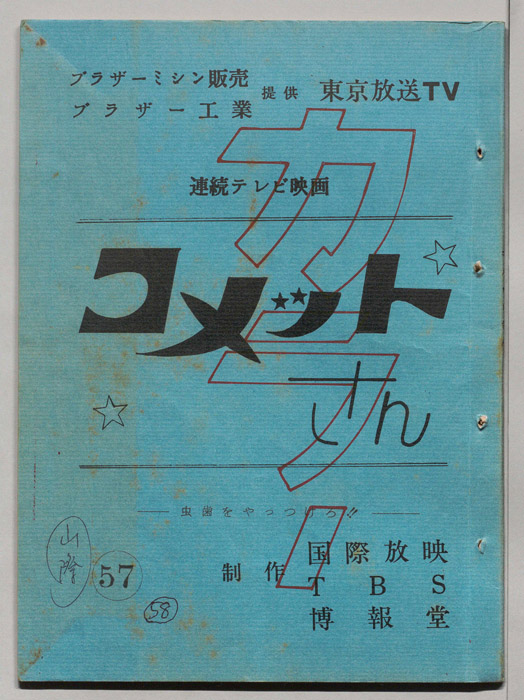 ブラザーミシン販売
ブラザー工業
提供
東京放送TV
連続テレビ映画
カラー
コメット
さん
虫歯をやっつけろ!!
制作
国際放映
TBS
博報堂
山
57
58